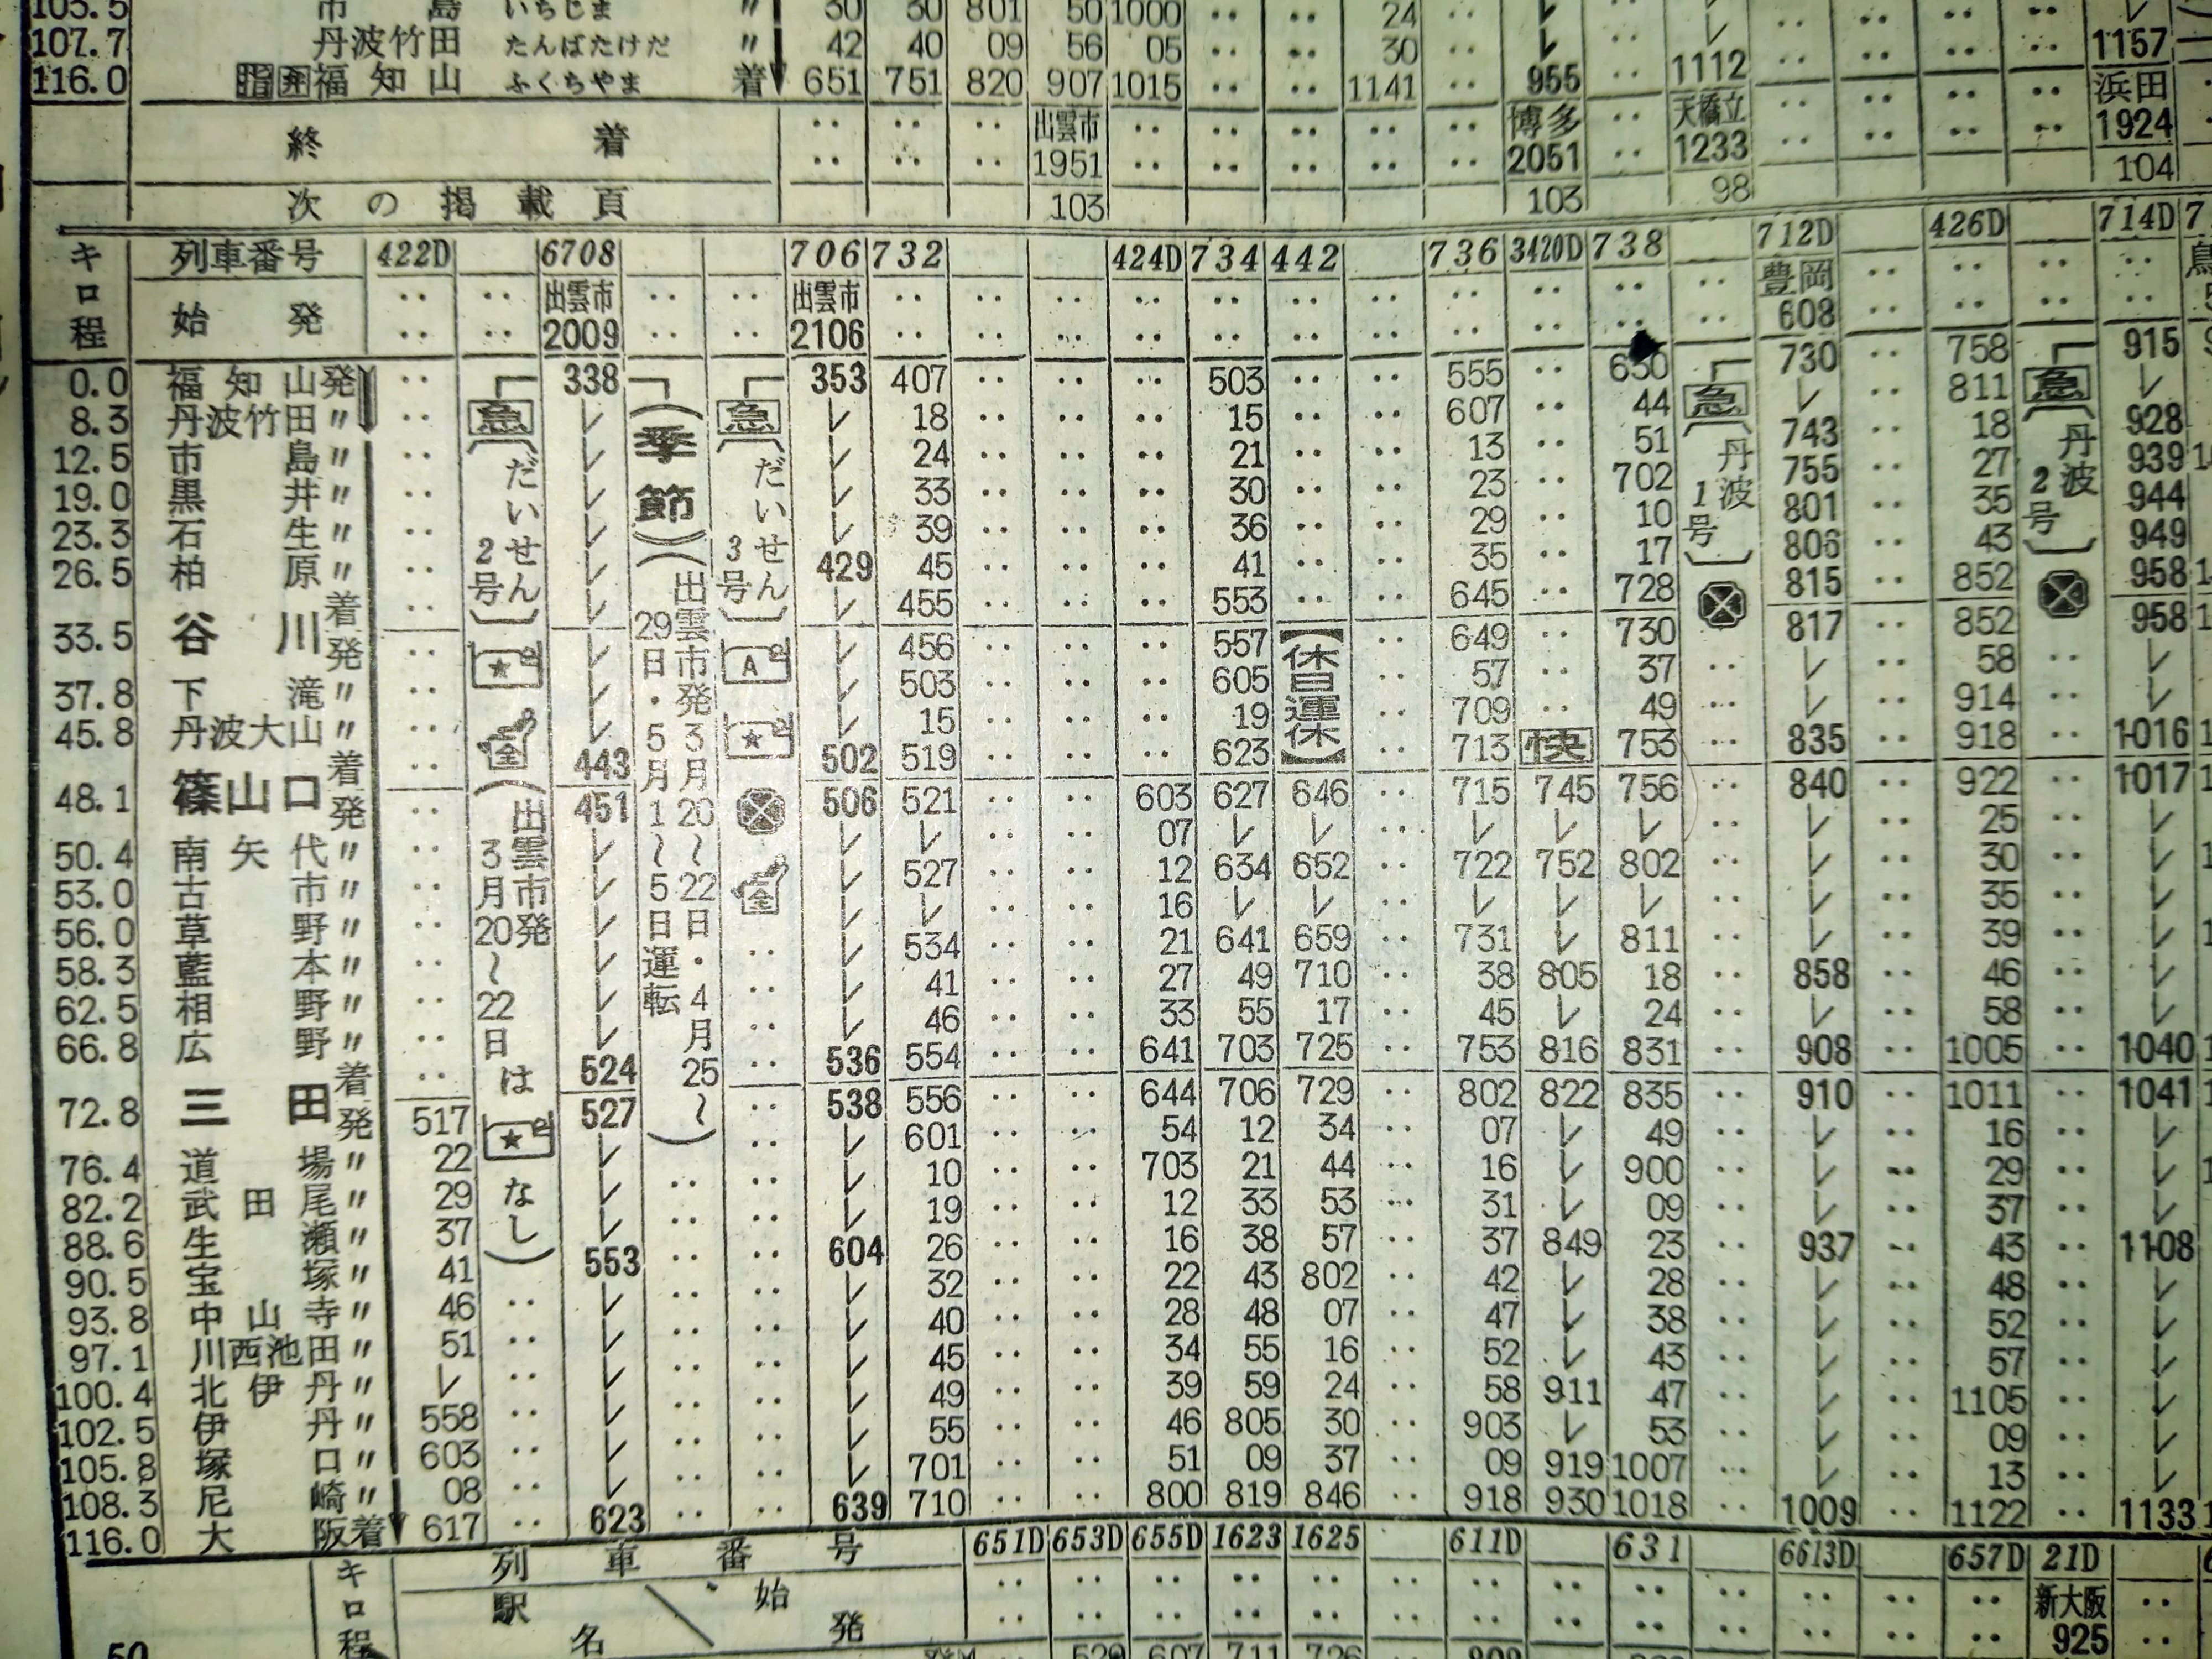 105.5 市島 いちじま 〃 30 30 801 50 1000 ‥ ‥ 24 ‥ レ ‥ レ ‥ ‥ ‥ ‥ レ
107.7 丹波竹田 たんばたけだ 〃 42 40 09 56 05 ‥ ‥ 30 ‥ レ ‥ レ ‥ ‥ ‥ ‥ 1157
116.0 福知山 ふくちやま 着 651 751 820 907 1015 ‥ ‥ 1141 ‥ 955 ‥ 1112 ‥ ‥ ‥ ‥ 浜田
終着 ‥ ‥ ‥ 出雲市 1951 ‥ ‥ ‥ ‥ ‥ 博多 2051 ‥ 天橋立 1233 ‥ ‥ ‥ ‥ 1924
次の掲載頁 103 103 98 104
キロ程 列車番号 422D 6708 706 732 424D 734 442 736 3420D 738 712D 426D 714D
始発 ‥ ‥ 出雲市 2009 ‥ ‥ 出雲市 2106 ‥ ‥ ‥ ‥ ‥ ‥ ‥ ‥ ‥ ‥ ‥ 豊岡 608 ‥ ‥ ‥ ‥
0.0 福知山発 ‥ 338 353 407 ‥ ‥ ‥ 503 ‥ ‥ 555 ‥ 630 730 ‥ 758 915
8.3 丹波竹田〃 ‥ レ レ 18 ‥ ‥ ‥ 15 ‥ ‥ 607 ‥ 44 レ ‥ 811 レ
12.5 市島〃 ‥ レ レ 24 ‥ ‥ ‥ 21 ‥ ‥ 13 ‥ 51 743 ‥ 18 928
19.0 黒井〃 ‥ レ レ 33 ‥ ‥ ‥ 30 ‥ ‥ 23 ‥ 702 755 ‥ 27 939
23.3 石生〃 ‥ レ レ 39 ‥ ‥ ‥ 36 ‥ ‥ 29 ‥ 10 801 ‥ 35 944
26.5 柏原〃 ‥ レ 429 45 ‥ ‥ ‥ 41 ‥ ‥ 35 ‥ 17 806 ‥ 43 949
33.5 谷川着 ‥ レ レ 455 ‥ ‥ ‥ 553 ‥ ‥ 645 ‥ 728 815 ‥ 852 958
発 ‥ レ レ 456 ‥ ‥ ‥ 557 ‥ 649 ‥ 730 817 ‥ 852 958
37.8 下滝〃 ‥ レ レ 503 ‥ ‥ ‥ 605 ‥ 57 ‥ 37 ‥ レ ‥ 58 ‥ レ
45.8 丹波大山〃 ‥ レ レ 15 ‥ ‥ ‥ 19 ‥ 709 ‥ 49 ‥ レ ‥ 914 ‥ レ
48.1 篠山口着 ‥ 443 502 519 ‥ ‥ ‥ 623 ‥ 713 快 753 ‥ 835 ‥ 918 ‥ 1016
発 ‥ 451 506 521 ‥ ‥ 603 627 646 ‥ 715 745 756 ‥ 840 ‥ 922 ‥ 1017
50.4 南矢代〃 ‥ レ レ レ ‥ ‥ 07 レ レ ‥ レ レ レ ‥ レ ‥ 25 ‥ レ
53.0 古市〃 ‥ レ レ 527 ‥ ‥ 12 634 652 ‥ 722 752 802 ‥ レ ‥ 30 ‥ レ
56.0 草野〃 ‥ レ レ レ ‥ ‥ 16 レ レ ‥ レ レ レ ‥ レ ‥ 35 ‥ レ
58.3 藍本〃 ‥ レ ‥ レ 534 ‥ ‥ 21 641 659 ‥ 731 レ 811 ‥ レ ‥ 39 ‥ レ
62.5 相野〃 ‥ レ ‥ レ 41 ‥ ‥ 27 49 710 ‥ 38 805 18 ‥ 858 ‥ 46 ‥ レ
66.8 広野〃 ‥ レ ‥ レ 46 ‥ ‥ 33 55 17 ‥ 45 レ 24 ‥ レ ‥ 58 ‥ レ
72.8 三田着 ‥ 524 ‥ 536 554 ‥ ‥ 641 703 725 ‥ 753 816 831 ‥ 908 ‥ 1005 ‥ 1040
発 517 527 ‥ 538 556 ‥ ‥ 644 706 729 ‥ 802 822 835 ‥ 910 ‥ 1011 ‥ 1041
76.4 道場〃 22 レ ‥ レ 601 ‥ ‥ 54 12 34 ‥ 07 レ 49 ‥ レ ‥ 16 ‥ レ
82.2 武田尾〃 29 レ ‥ ‥ レ 10 ‥ ‥ 703 21 44 ‥ 16 レ 900 ‥ レ ‥ 29 ‥ レ
88.6 生瀬〃 37 レ ‥ ‥ レ 19 ‥ ‥ 12 33 53 ‥ 31 レ 09 ‥ レ ‥ 37 ‥ レ
90.5 宝塚〃 41 553 ‥ ‥ 604 26 ‥ ‥ 16 38 57 ‥ 37 849 23 ‥ 937 ‥ 43 ‥ 1108
93.8 中山寺〃 46 ‥ レ ‥ ‥ レ 32 ‥ ‥ 22 43 802 ‥ 42 レ 28 ‥ レ ‥ 48 ‥ レ
97.1 川西池田〃 51 ‥ レ ‥ ‥ レ 40 ‥ ‥ 28 48 07 ‥ 47 レ 38 ‥ レ ‥ 52 ‥ レ
100.4 北伊丹〃 レ ‥ レ ‥ ‥ レ 45 ‥ ‥ 34 55 16 ‥ 52 レ 43 ‥ レ ‥ 57 ‥ レ
102.5 伊丹〃 558 ‥ レ ‥ ‥ レ 49 ‥ ‥ 39 59 24 ‥ 58 911 47 ‥ レ ‥ 1105 ‥ レ
105.8 塚口〃 603 ‥ レ ‥ ‥ レ 55 ‥ ‥ 46 805 30 ‥ 903 レ 53 ‥ レ ‥ 09 ‥ レ
108.3 尼崎〃 08 ‥ レ ‥ ‥ レ 701 ‥ ‥ 51 09 37 ‥ 09 919 1007 ‥ レ ‥ 13 ‥ レ
116.0 大阪着 617 ‥ 623 ‥ ‥ 639 710 ‥ ‥ 800 819 846 ‥ 918 930 1018 ‥ 1009 ‥ 1122 ‥ 1133
急 (だいせん2号) ★
全 (出雲市発3月20〜22日は★なし)
(季節) (出雲市発3月20〜22日・4月25〜29日・5月1〜5日運転)
急 (だいせん3号) A ★ 全
【休日運休】
急 (丹波1号)
急 (丹波2号)
キロ程 列車番号 651D 653D 655D 1623 1625 611D 631 6613D 657D 21D
駅名 始発 ‥ ‥ ‥ ‥ ‥ ‥ ‥ ‥ ‥ ‥ ‥ ‥ ‥ 新大阪 925 ‥
50 発 529 607 711 726